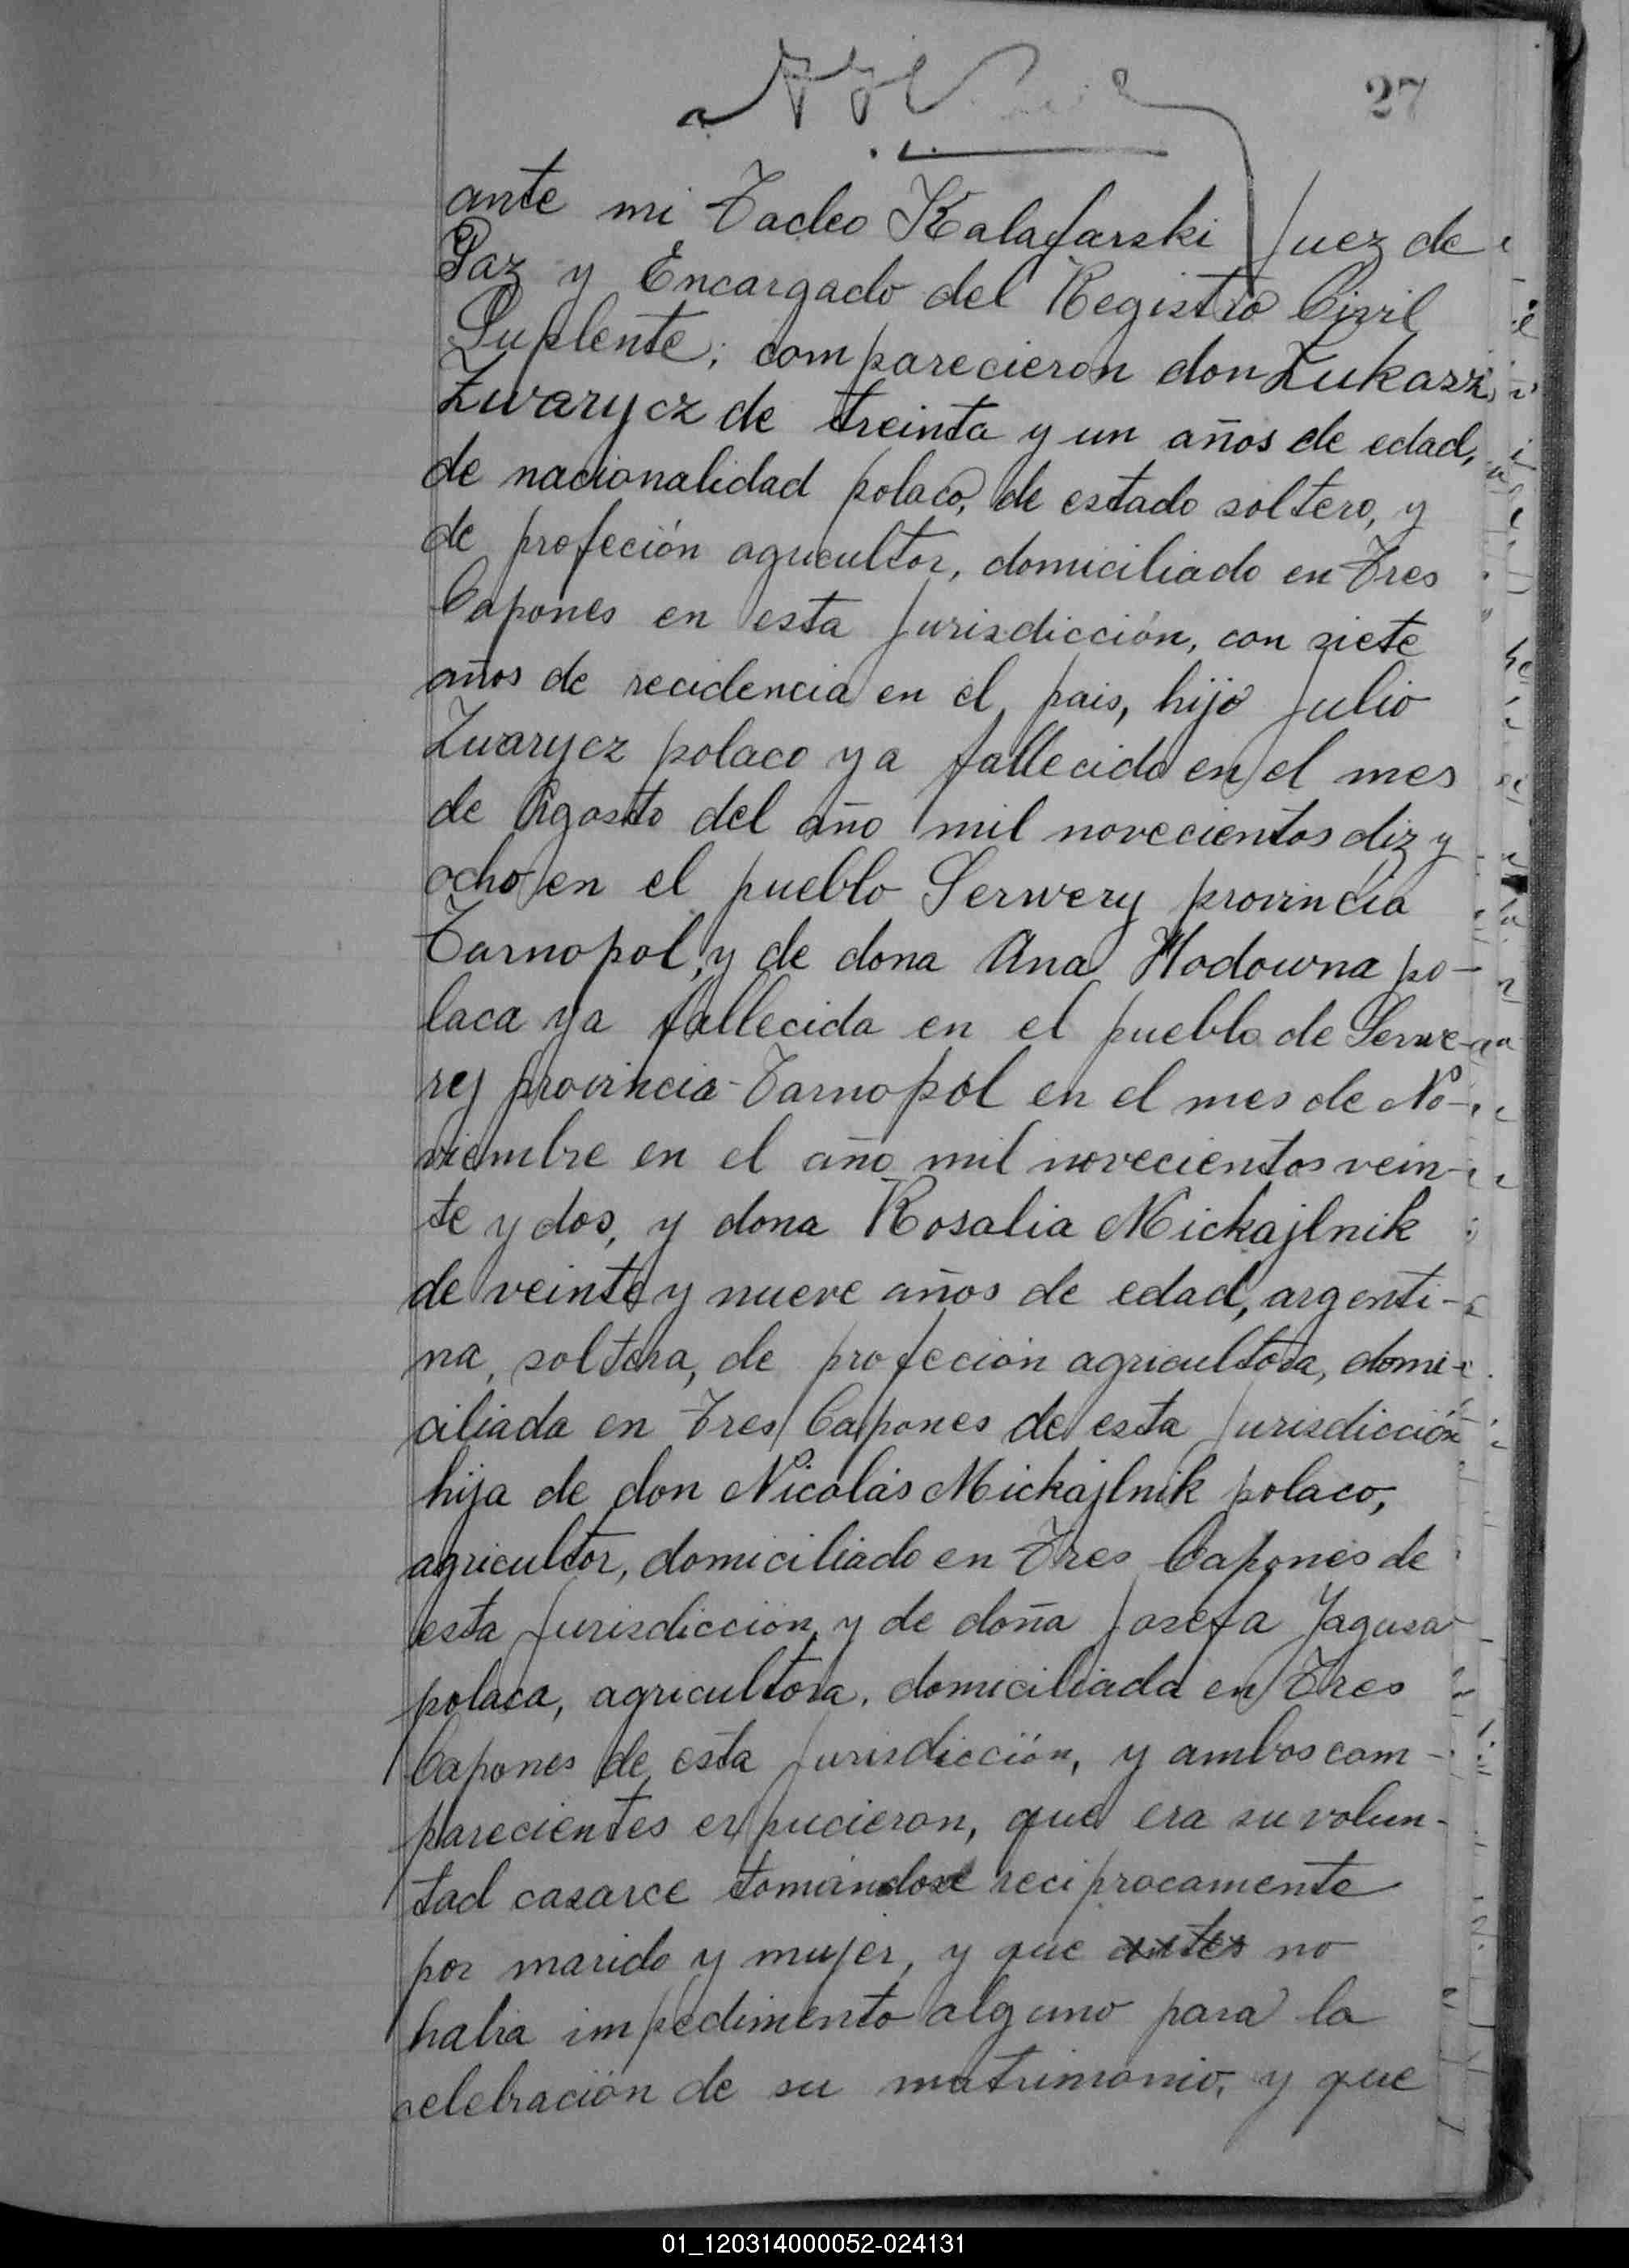 27
ante mi Tadeo Kalafarski Juez de
Paz y Encargado del Registro Civil
Suplente; comparecieron don Lukasz
Zwarycz de treinta y un años de edad,
de nacionalidad polaco, de estado soltero, y
de profeción agricultor, domiciliado en Tres
Capones en esta Jurisdicción, con siete
años de recidencia en el pais, hijo Julio
Zwarycz polaco ya fallecido en el mes
de Agosto del año mil novecientos diz y
ocho en el pueblo Serwery provincia
Tarnopol, y de dona Ana Hodowna po-
laca ya fallecida en el pueblo de Serwe-
rej provincia Tarnopol en el mes de No-
viembre en el año mil novecientos vein-
te y dos, y dona Rosalia Mickajlnik
de veinte y nueve años de edad, argenti-
na, soltera, de profeción agricultora, domi-
ciliada en Tres Capones de esta Jurisdicción
hija de don Nicolás Mickajlnik polaco,
agricultor, domiciliado en Tres Capones de
esta Jurisdicción, y de doña Josefa Jagusa
polaca, agricultora, domiciliada en Tres
Capones de esta Jurisdicción, y ambos com-
parecientes expucieron, que era su volun-
tad casarce tomándose reciprocamente
por marido y mujer, y que antes no
habia impedimento alguno para la
celebración de su matrimonio, y que
01_120314000052-024131